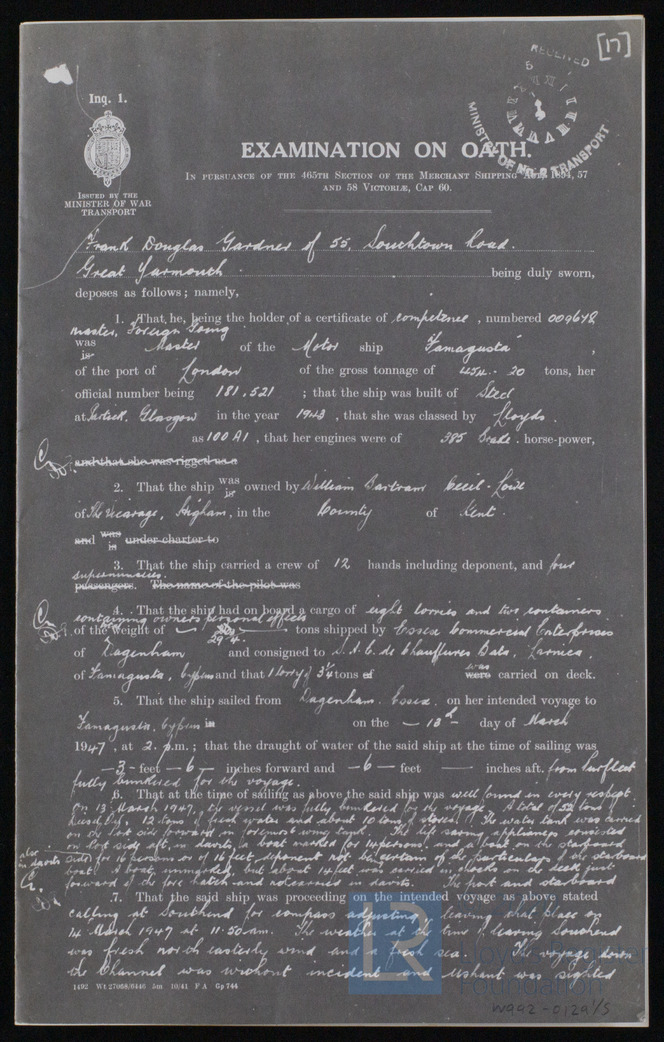 [17]
RECEIVED
MINISTRY OF WAR TRANSPORT
Inq. 1.
ISSUED BY THE
MINISTER OF WAR
TRANSPORT
EXAMINATION ON OATH.
IN PURSUANCE OF THE 465TH SECTION OF THE MERCHANT SHIPPING ACT, 1894, 57
AND 58 VICTORIÆ, CAP 60.
Frank Douglas Gardner of 55, Southtown Road.
Great Yarmouth being duly sworn,
deposes as follows; namely,
1. That he, being the holder of a certificate of competence, numbered 009678
Master, Foreign Going
was
is Master of the Motor ship Famagusta,
of the port of London of the gross tonnage of 454.20 tons, her
official number being 181,521; that the ship was built of Steel
at Partick, Glasgow in the year 1943, that she was classed by Lloyds.
as 100 A1, that her engines were of 385 Brake. horse-power,
and that she was rigged as a
2. That the ship was
is owned by William Bartram Cecil-Lowe
of The Vicarage, Higham, in the County of Kent.
and was
is under charter to
3. That the ship carried a crew of 12 hands including deponent, and four
supernumaries.
passengers. The name of the pilot was
4. That the ship had on board a cargo of eight lorries and two containers
containing owners personal effects
of the weight of 29.4. tons shipped by Essex Commercial Enterprises
of Dagenham and consigned to de Chauffures Bata, Larnica,
of Famagusta, Cyprus and that 1 lorry of 3¼ tons of was
were carried on deck.
5. That the ship sailed from Dagenham, Essex. on her intended voyage to
Famagusta, Cyprus in on the 13th day of March
1947, at 2. p.m.; that the draught of water of the said ship at the time of sailing was
3 feet 6 inches forward and 6 feet inches aft. from Purfleet
fully bunkered for the voyage.
6. That at the time of sailing as above the said ship was well found in every respect.
On 13 March 1947, the vessel was fully bunkered for the voyage. A total of 52 tons of
Diesel Oil, 12 tons of fresh water and about 10 tons of stores. The water tank was carried
on the port side forward in foremost wing tank. The life saving appliances consisted
on port side aft, in davits, a boat marked for 14 persons, and a boat on the starboard
also in davits
side for 16 persons or of 16 feet deponent not being certain of the particulars of the starboard
boat. A boat, unmarked, but about 14 feet was carried in chocks on the deck just
forward of the fore hatch and not carried in davits. The port and starboard
7. That the said ship was proceeding on the intended voyage as above stated
calling at Southend for compass adjusting, leaving that place on
14 March 1947 at 11.50 am. The weather at the time of leaving Southend
was fresh north easterly wind and a fresh sea. The voyage down
the Channel was without incident and Ushant was sighted
1492 Wt 27068/6446 3m 10/41 F A Gp 744
LR
Foundation
W992-0129 1/5